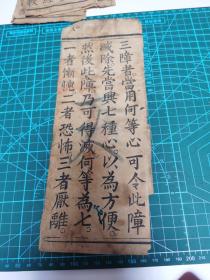 三障者當用何等心可令此障
滅除先當興七種心以為方便
然後此障乃可得滅何等為七
一者慚愧二者恐怖三者厭離